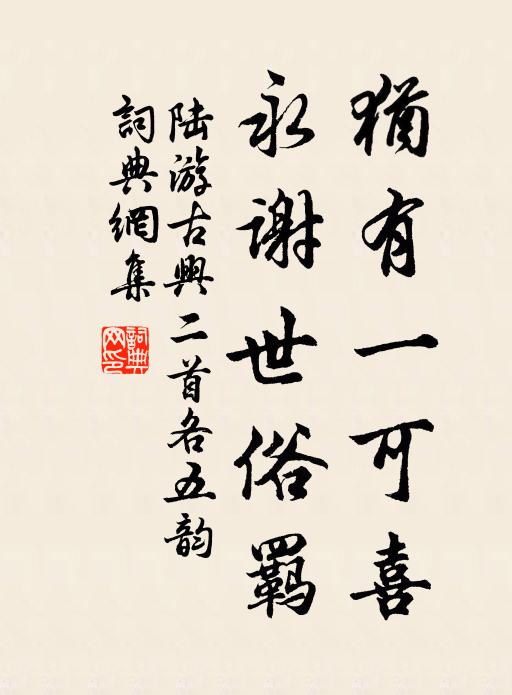 猶有一可喜
永謝世俗羈
陆游古興二首各五韵
詞典網集
詞典網印